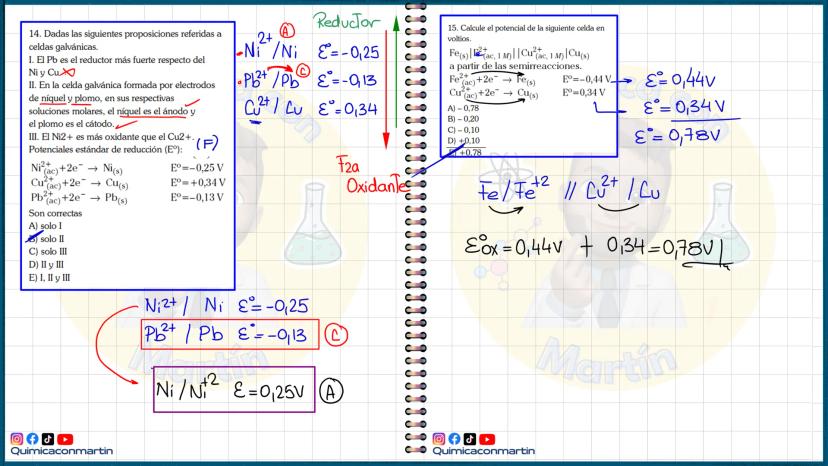 14. Dadas las siguientes proposiciones referidas a
celdas galvánicas.
I. El Pb es el reductor más fuerte respecto del
Ni y Cu.
II. En la celda galvánica formada por electrodos
de níquel y plomo, en sus respectivas
soluciones molares, el níquel es el ánodo y
el plomo es el cátodo.
III. El Ni2+ es más oxidante que el Cu2+.
(F)
Potenciales estándar de reducción (E°):
Ni²⁺(ac)+2e⁻ → Ni(s) E°=−0,25 V
Cu²⁺(ac)+2e⁻ → Cu(s) E°=+0,34 V
Pb²⁺(ac)+2e⁻ → Pb(s) E°=−0,13 V
Son correctas
A) solo I
B) solo II
C) solo III
D) II y III
E) I, II y III
Reductor
A
Ni²⁺/Ni Ɛ°=-0,25
C
Pb²⁺/Pb Ɛ°=-0,13
Cu²⁺/Cu Ɛ°=0,34
Oxidante
Ni²⁺/Ni Ɛ°=-0,25
Pb²⁺/Pb Ɛ°=-0,13 C
Ni/Ni⁺² Ɛ=0,25V A
Quimicaconmartin
15. Calcule el potencial de la siguiente celda en
voltios.
Fe(s)|Fe²⁺(ac, 1 M)||Cu²⁺(ac, 1 M)|Cu(s)
a partir de las semirreacciones.
Fe²⁺(ac)+2e⁻ → Fe(s) E°=−0,44 V
Cu²⁺(ac)+2e⁻ → Cu(s) E°=0,34 V
A) − 0,78
B) − 0,20
C) − 0,10
D) +0,10
E) +0,78
Ɛ°=0,44V
Ɛ°=0,34V
Ɛ°=0,78V
Fe/Fe⁺² // Cu²⁺/Cu
Ɛ°ox=0,44V + 0,34=0,78V
Martín
Martín
Quimicaconmartin